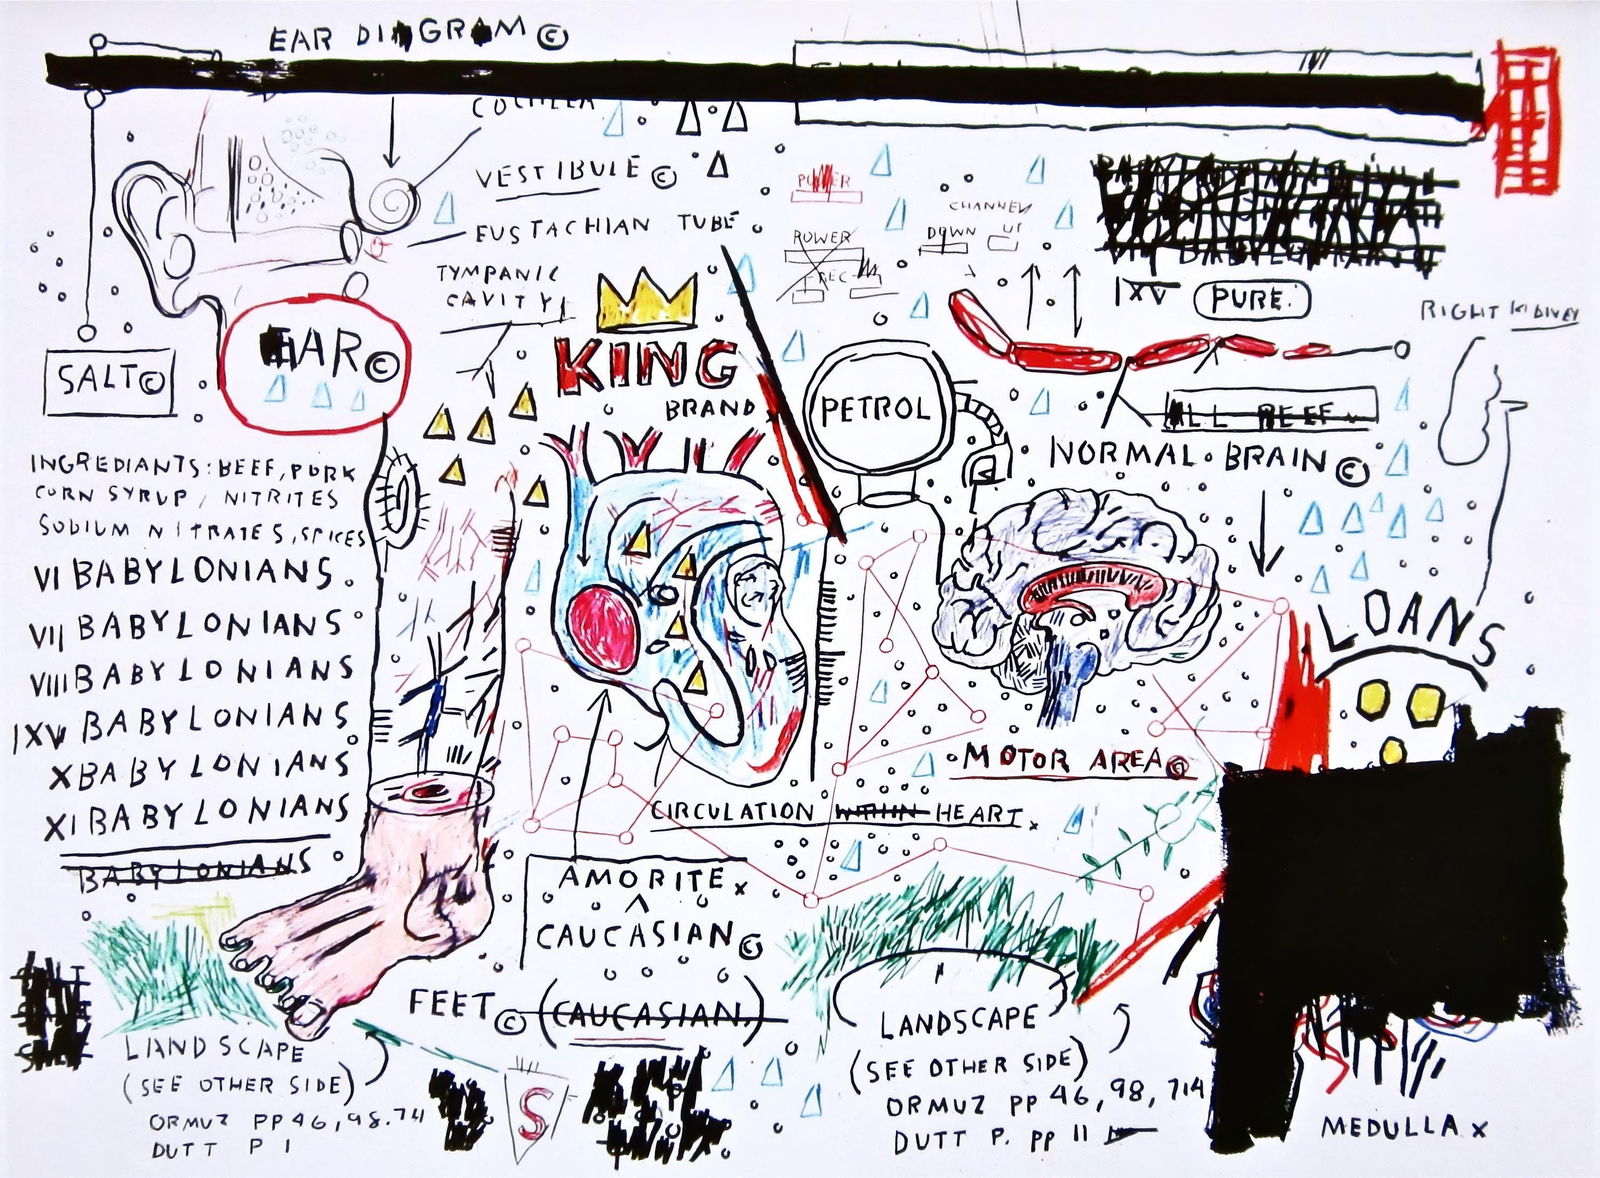 EAR DIAGRAM ©
COCHLEA
VESTIBULE ©
EUSTACHIAN TUBE
TYMPANIC
CAVITY
EAR ©
SALT ©
KING
BRAND
POWER
POWER
REC
CHANNEL
DOWN UP
IXV PURE.
RIGHT KIDNEY
PETROL
ALL BEEF
NORMAL BRAIN ©
INGREDIANTS: BEEF, PORK
CORN SYRUP, NITRITES
SODIUM NITRATES, SPICES
VI BABYLONIANS
VII BABYLONIANS
VIII BABYLONIANS
IXV BABYLONIANS
X BABYLONIANS
XI BABYLONIANS
BABYLONIANS
LOANS
MOTOR AREA ©
CIRCULATION WITHIN HEART x
AMORITE x
CAUCASIAN ©
FEET © (CAUCASIAN)
LANDSCAPE
(SEE OTHER SIDE)
ORMUZ PP 46, 98. 74
DUTT P 1
S
LANDSCAPE
(SEE OTHER SIDE)
ORMUZ PP 46, 98, 714
DUTT P. PP 11
MEDULLA x